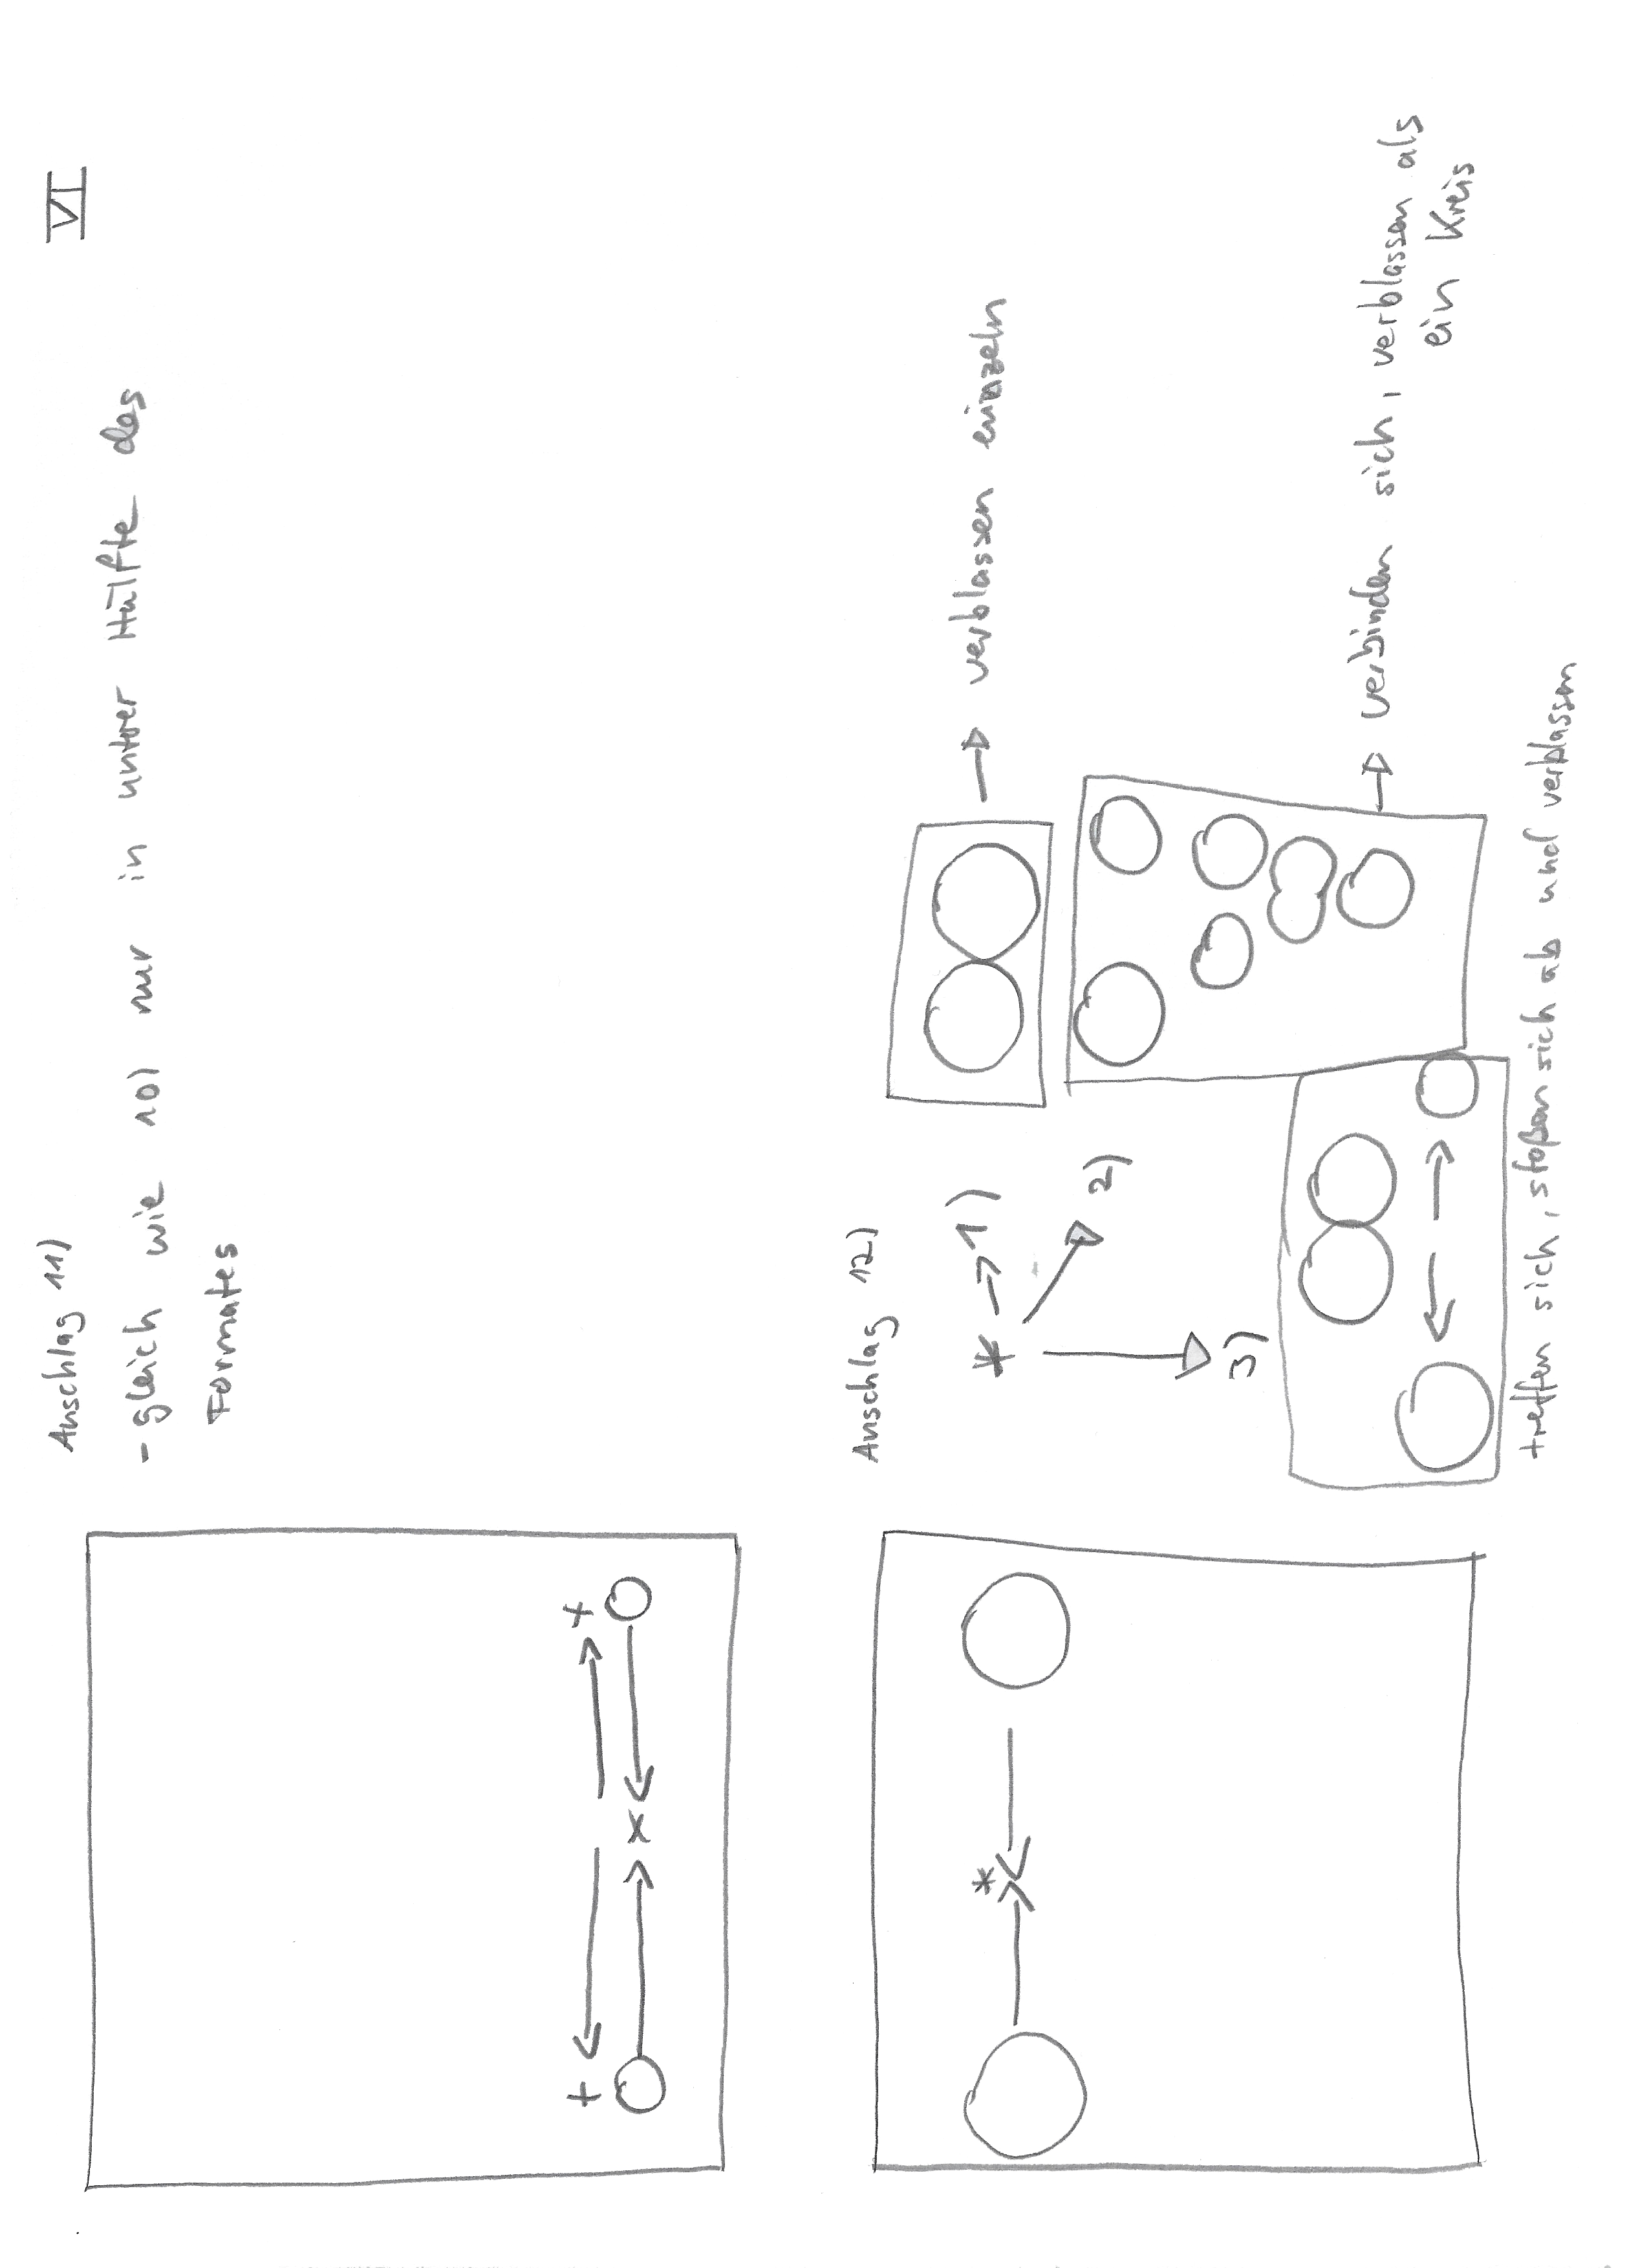 VI
Anschlag 11)
- gleich wie 10) nur in unterer Hälfte des
Formates
Anschlag 12)
* → 1)
2)
3)
→ verblassen einzeln
→ verbinden sich, verblassen als
ein Kreis
treffen sich, stoßen sich ab und verblassen
+ +
x
*